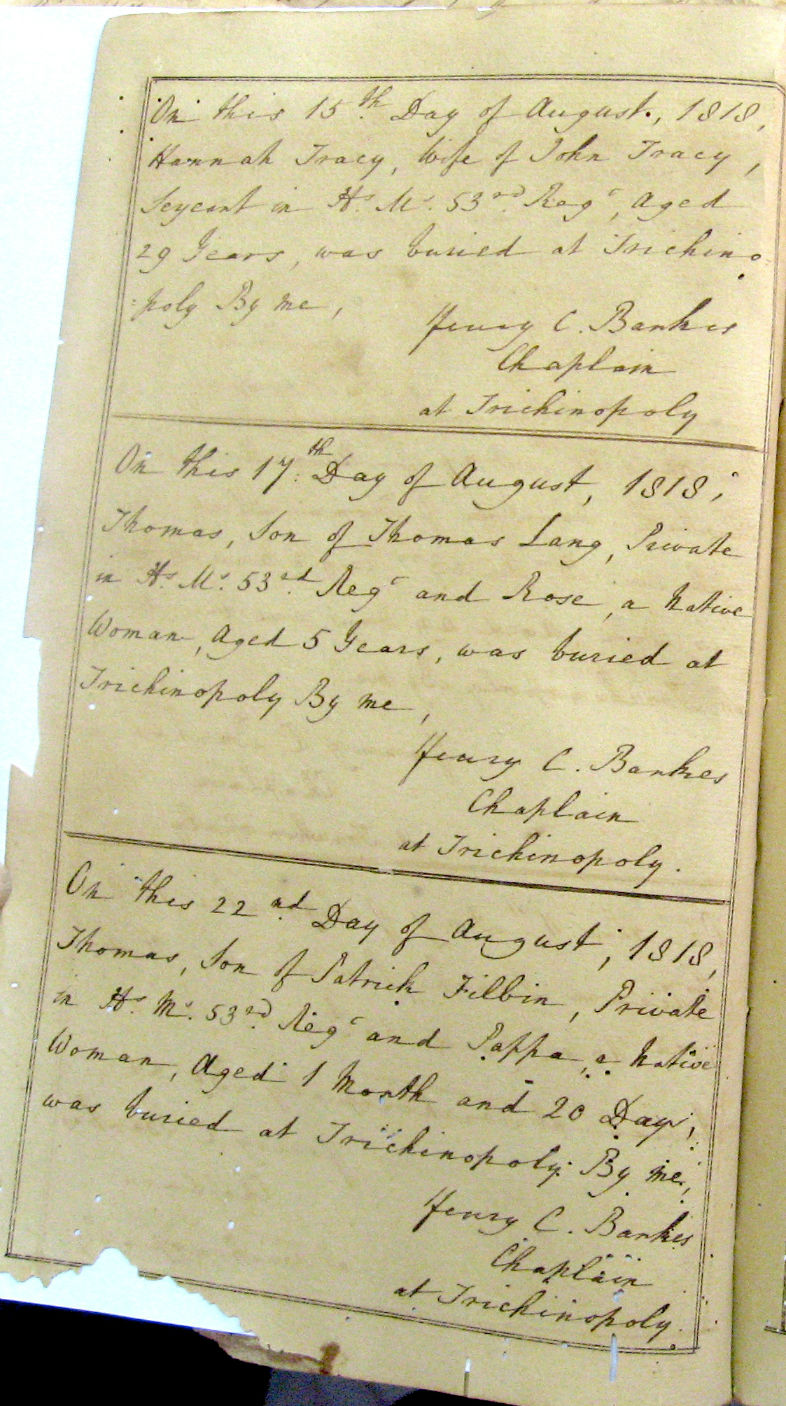 On this 15th Day of August, 1818,
Hannah Tracy, Wife of John Tracy,
Serjeant in H.s M.s 53rd Regt, Aged
29 Years, was buried at Trichino-
=poly By me,
Henry C. Bankes
Chaplain
at Trichinopoly
On this 17th Day of August, 1818,
Thomas, Son of Thomas Lang, Private
in H.s M.s 53rd Regt and Rose, a Native
Woman, Aged 5 Years, was buried at
Trichinopoly By me,
Henry C. Bankes
Chaplain
at Trichinopoly.
On this 22nd Day of August, 1818,
Thomas, Son of Patrick Filbin, Private
in H.s M.s 53rd Regt and Pappa, a Native
Woman, Aged 1 Month and 20 Days,
was buried at Trichinopoly By me,
Henry C. Bankes
Chaplain
at Trichinopoly.